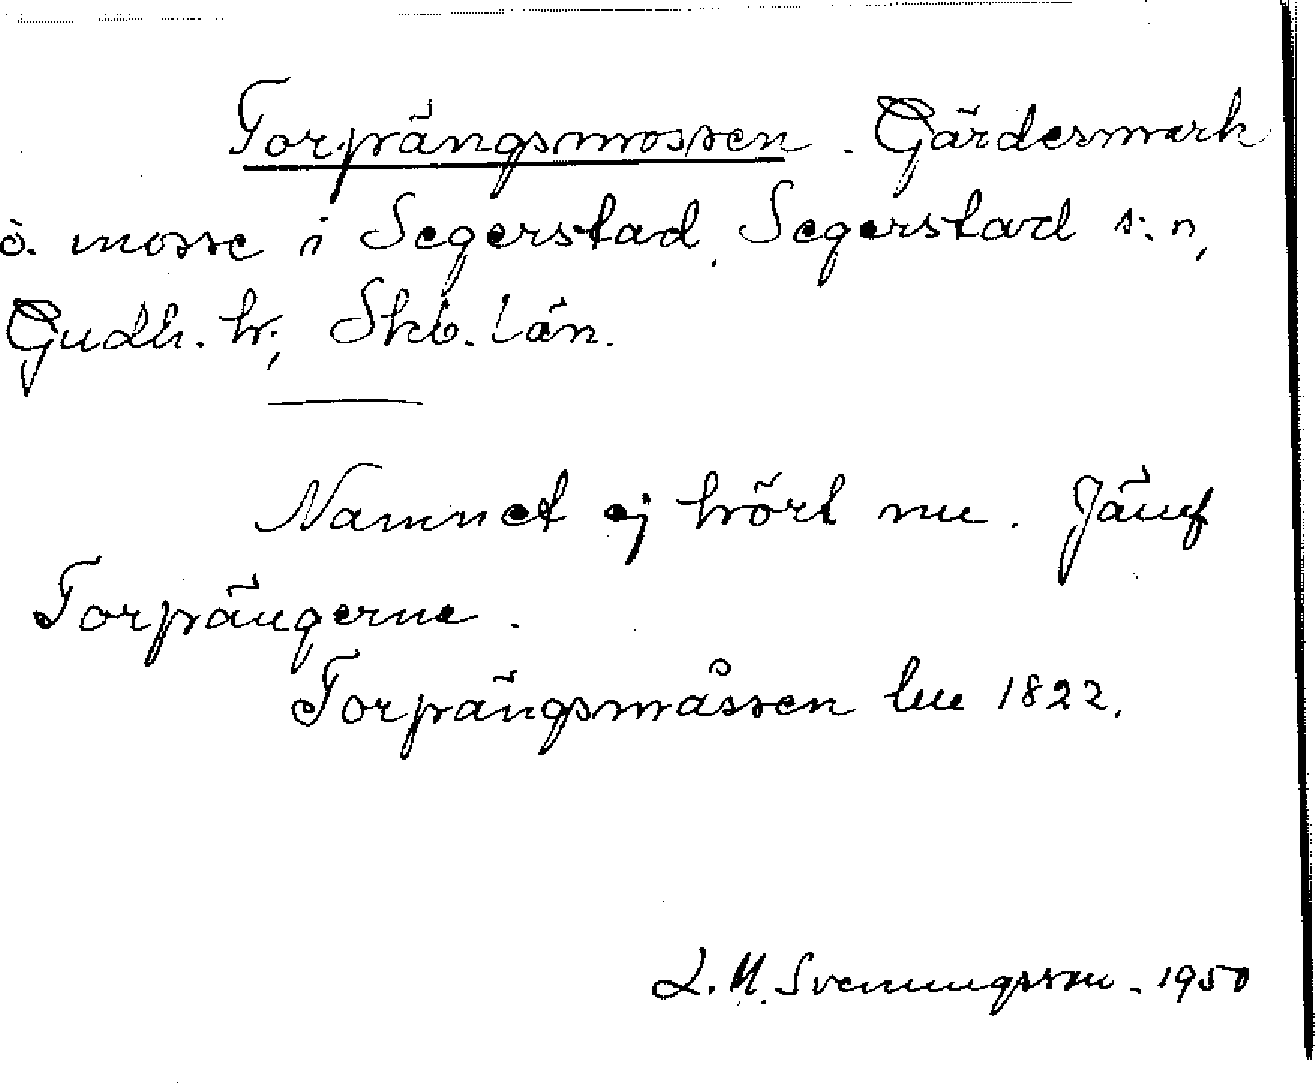 Torpängsmossen. Gärdesmark
o. mosse i Segerstad, Segerstad s:n,
Gudh. hr, Skb. län.
Namnet ej hört nu. Jämf
Torpängerne.
Torpängsmåssen lm 1822.
L. M. Svenungsson. 1950